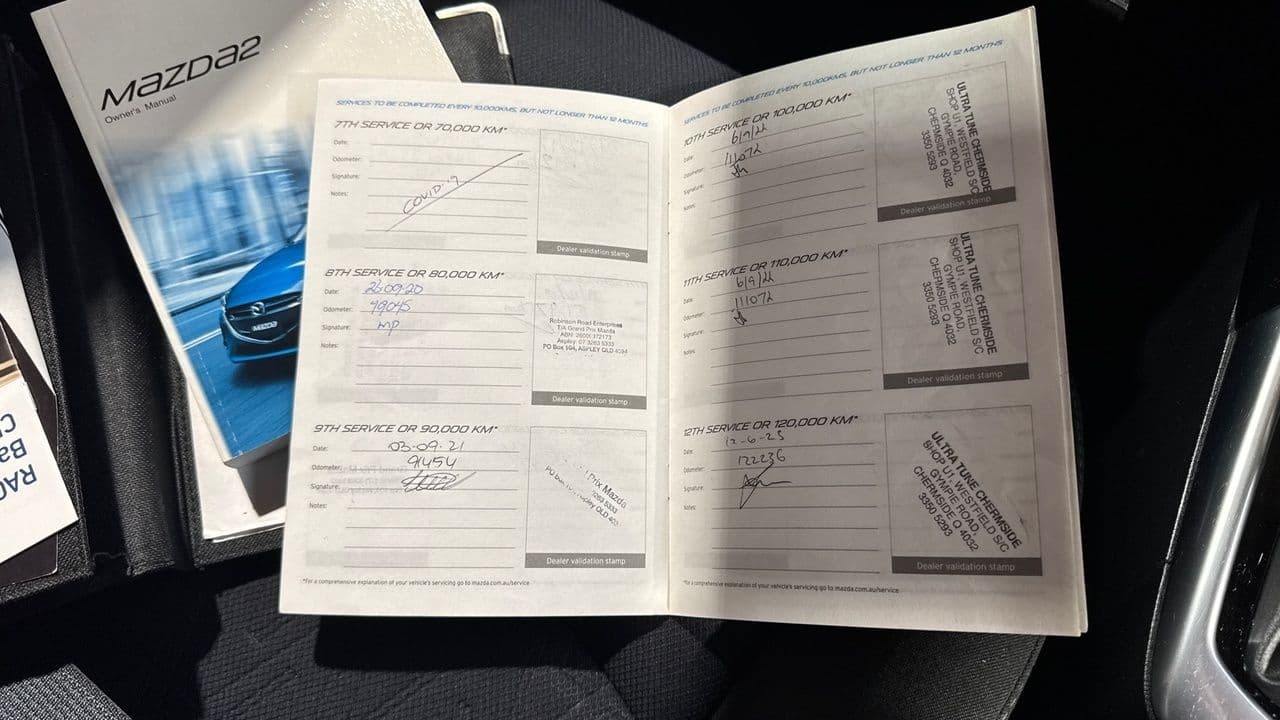 mazda2
Owner's Manual
RAC
Ba
SERVICES TO BE COMPLETED EVERY 10,000KMS, BUT NOT LONGER THAN 12 MONTHS
7TH SERVICE OR 70,000 KM*
Date:
Odometer:
Signature:
Notes:
COVID-19
Dealer validation stamp
8TH SERVICE OR 80,000 KM*
Date: 26-09-20
Odometer: 79045
Signature: MP
Notes:
Robinson Road Enterprises
T/A Grand Prix Mazda
Aspley: 07 3263 5333
PO Box 104, ASPLEY QLD 4034
Dealer validation stamp
9TH SERVICE OR 90,000 KM*
Date: 03-09-21
Odometer: 91454
Signature:
Notes:
Prix Mazda
3263 5333
PO Box
QLD
Dealer validation stamp
*For a comprehensive explanation of your vehicle's servicing go to mazda.com.au/service
SERVICES TO BE COMPLETED EVERY 10,000KMS, BUT NOT LONGER THAN 12 MONTHS
10TH SERVICE OR 100,000 KM*
Date: 6/9/22
Odometer: 111072
Signature:
Notes:
ULTRA TUNE CHERMSIDE
SHOP U1, WESTFIELD S/C
GYMPIE ROAD,
CHERMSIDE Q 4032
3350 5293
Dealer validation stamp
11TH SERVICE OR 110,000 KM*
Date: 6/9/22
Odometer: 111072
Signature:
Notes:
ULTRA TUNE CHERMSIDE
SHOP U1, WESTFIELD S/C
GYMPIE ROAD,
CHERMSIDE Q 4032
3350 5293
Dealer validation stamp
12TH SERVICE OR 120,000 KM*
Date: 12-6-23
Odometer: 122236
Signature:
Notes:
ULTRA TUNE CHERMSIDE
SHOP U1, WESTFIELD S/C
GYMPIE ROAD,
CHERMSIDE Q 4032
3350 5293
Dealer validation stamp
*For a comprehensive explanation of your vehicle's servicing go to mazda.com.au/service